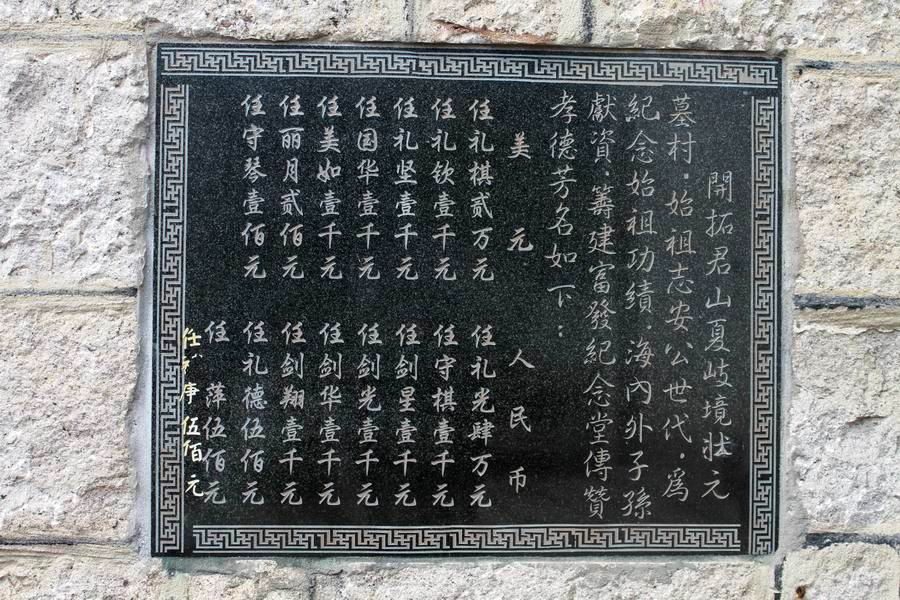 開拓君山夏岐境壯元
墓村．始祖志安公世代．爲
紀念始祖功績．海內外子孫
獻資．籌建富發紀念堂傳贊
孝德芳名如下：
美元
任礼棋贰万元
任礼钦壹千元
任礼坚壹千元
任国华壹千元
任美如壹千元
任丽月贰佰元
任守琴壹佰元
人民币
任礼光肆万元
任守棋壹千元
任剑星壹千元
任剑光壹千元
任剑华壹千元
任剑翔壹千元
任礼德伍佰元
任萍伍佰元
任 伍佰元